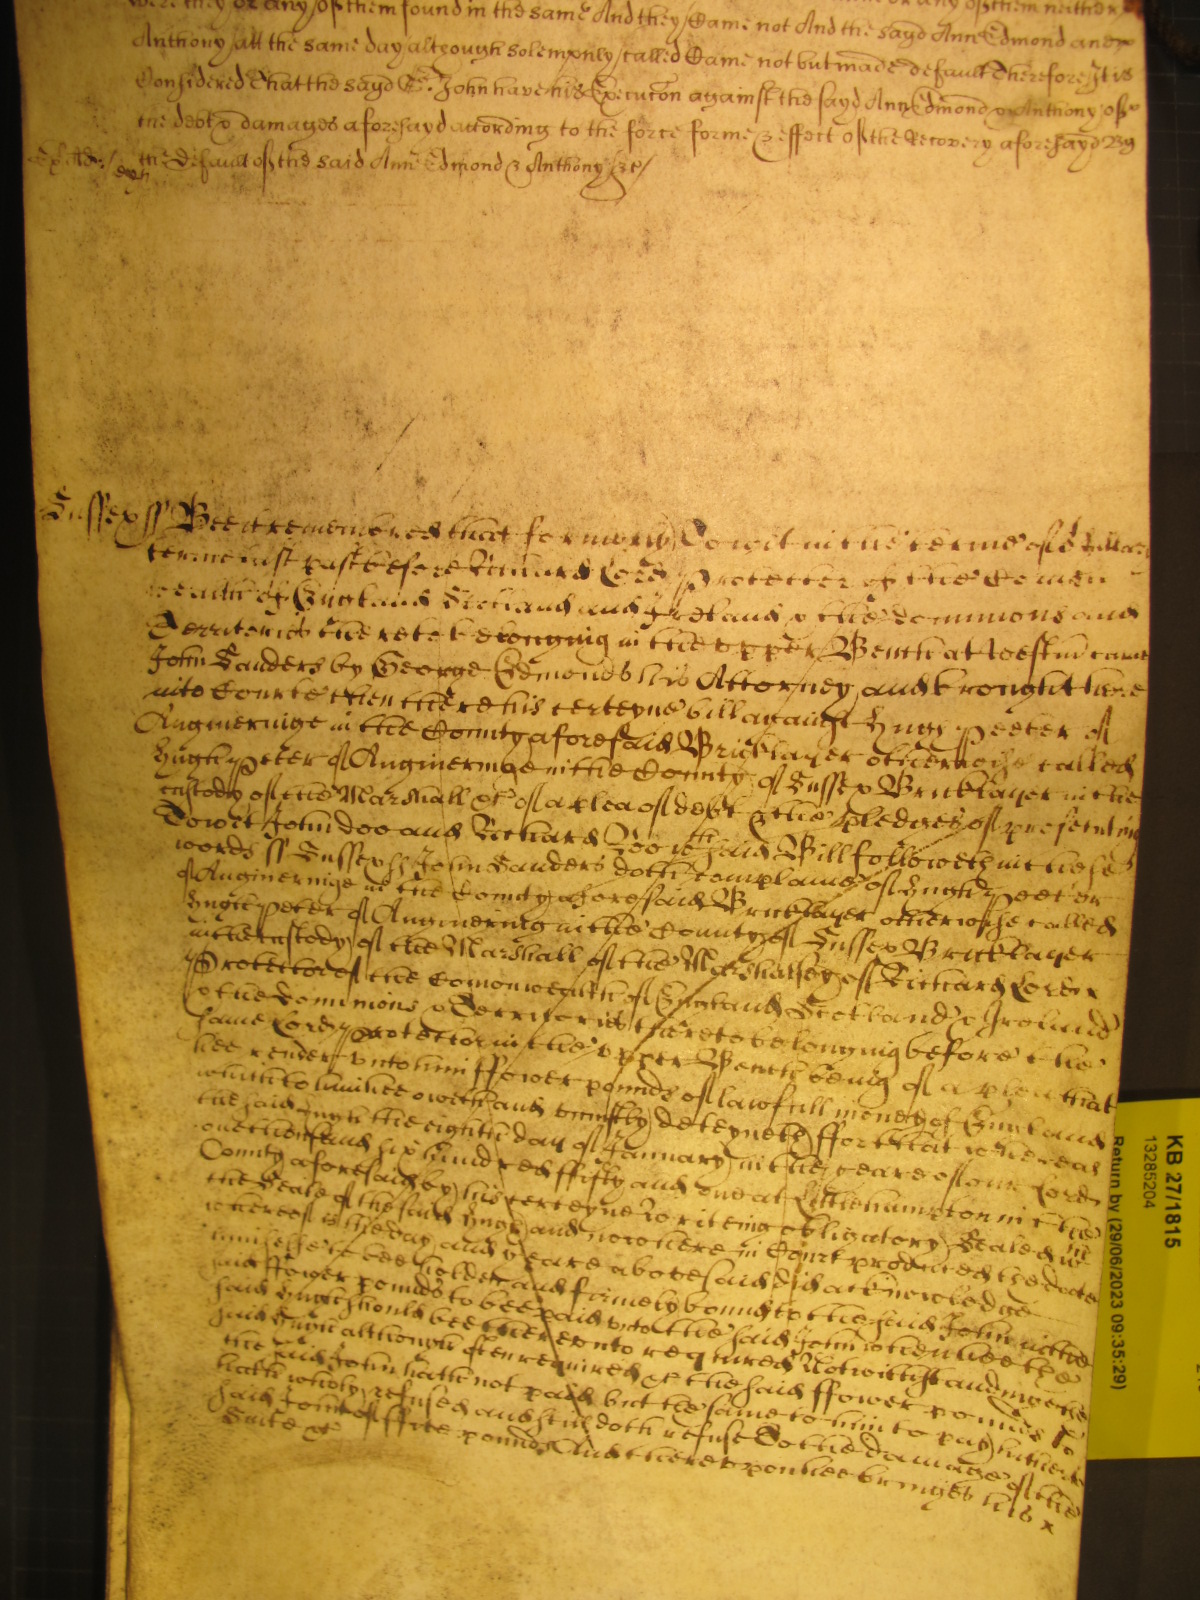 were they or any of them found in the same And they Came not And the sayd Ann Edmond and
Anthony att the same day although solempnly called Came not but made default Therefore It is
Considered That the sayd John have his Execucon against the sayd Ann Edmond & Anthony of
the debt & damages aforesayd according to the force forme & effect of the Recovery aforesayd By
the default of the said Ann Edmond & Anthony &c
Sussex ss Bee it remembred that formerly To wit in the terme of St Hillary
terme last past before Richard Lord Protector of the Comon
wealth of England Scotland and Ireland & the dominions and
Territories thereto belonging in the upper Bench at Westm came
John Sanders by George Edmonds his Attorney and brought here
into Courte then there his certeyne bill against Hugh Peeter of
Angmeringe in the County aforesaid Bricklayer otherwise called
Hugh Peter of Angmeringe in the County of Sussex Bricklayer in the
custody of the Marshall &c of a plea of debt & the pledges of prosecuting
To wit John Doo and Richard Roo wch said Bill followeth in these
words ss Sussex ss John Sanders doth complaine of Hugh Peeter
of Angmeringe in the County aforesaid Bricklayer otherwise called
Hugh Peter of Angmering in the County of Sussex Bricklayer
in the custody of the Marshall of the Marshalsey of Richard Lord
Protector of the Comonwealth of England Scotland & Ireland
& the Dominions & Territories thereto belonging before the
same Lord Protector in the upper Bench being of a plea that
hee render unto him ffower pounds of lawfull money of England
which to him hee oweth and uniustly deteyneth ffor that whereas
the said Hugh the eighth day of January in the yeare of our Lord
one thousand six hundred ffifty and at Littlehampton in the
County aforesaid by his certeyne Writeing obligatory Sealed wth
the Seale of the said Hugh and now here in Court produced the date
whereof is the day and yeare abovesaid did acknowledge
himselfe to bee holden and firmely bound to the said John in the
said ffower pounds to bee paid unto the said John when hee the
said Hugh should bee thereunto required Notwithstanding the
said Hugh although often required &c the said ffower pounds to
the said John hath not paid but the same to him to pay hitherto
hath wholy refused and still doth refuse To the damage of the
said John of ffive pounds And thereupon hee bringes his
Suite &c
KB 27/1815
13285204
Return by (29/06/2023 09:35:29)